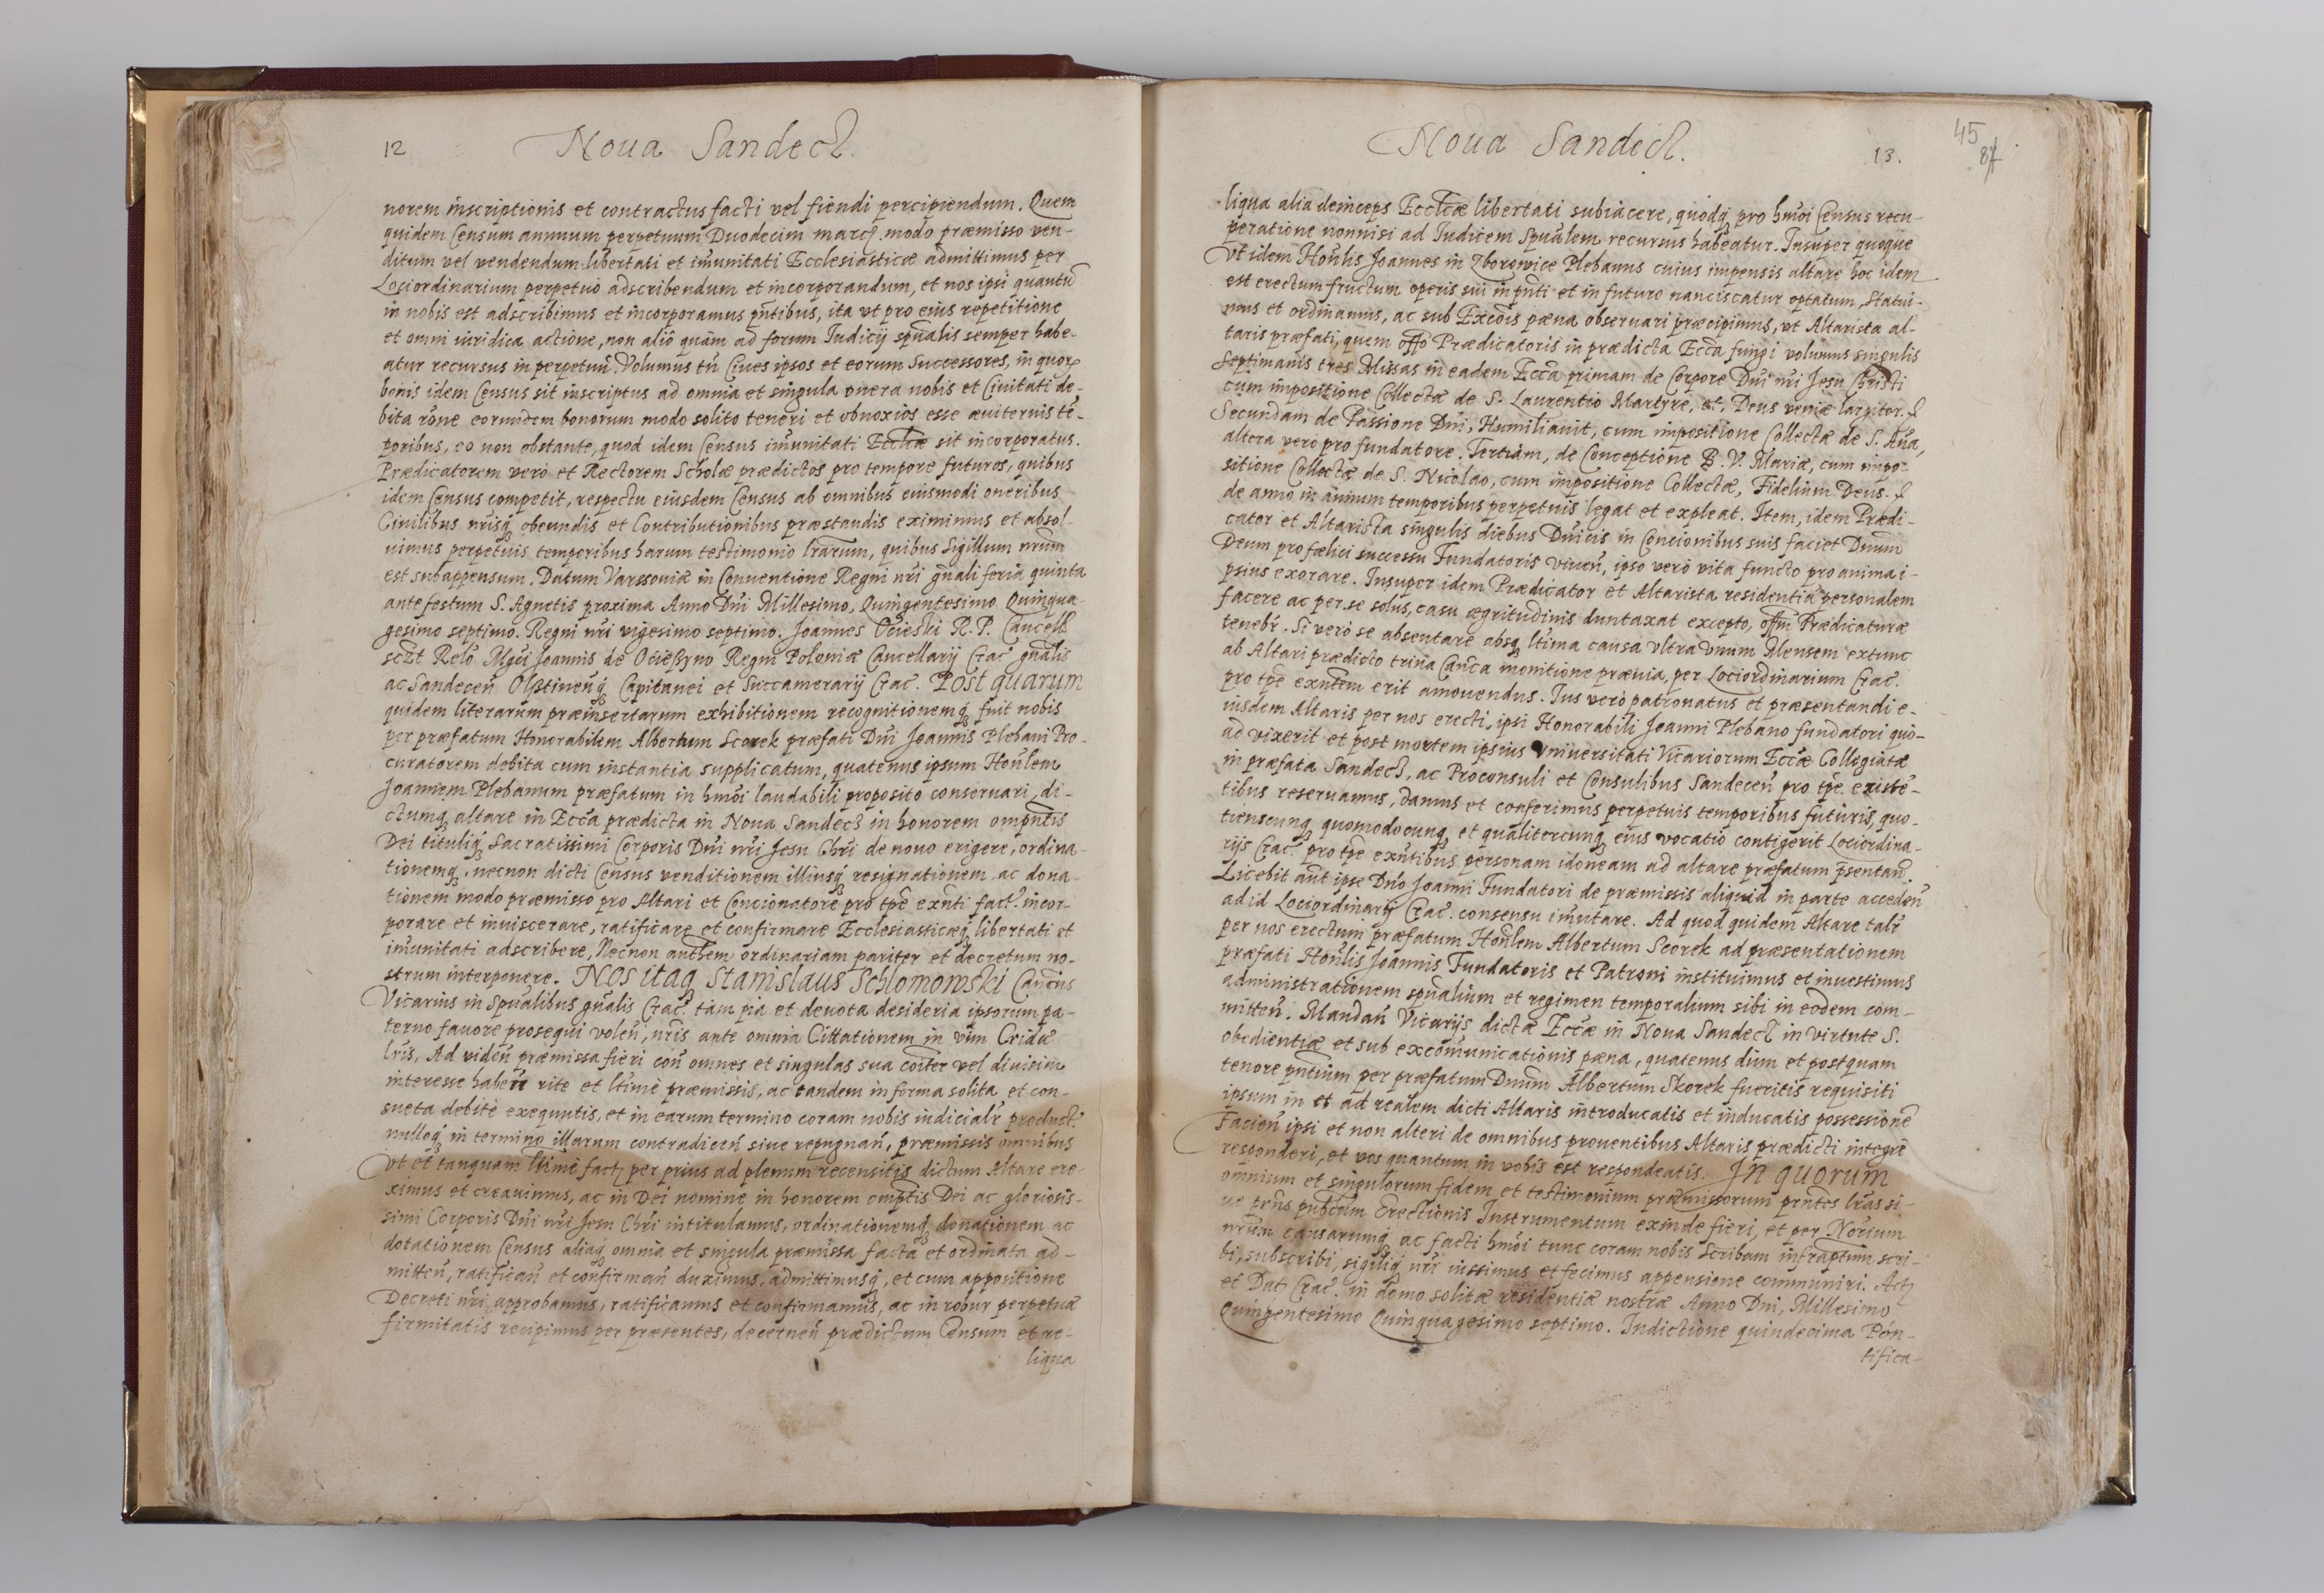 12
Noua Sandecz.
norem inscriptionis et contractus facti vel fiendi percipiendum. Quem
quidem Censum annuum perpetuum Duodecim marcz. modo præmisso ven-
ditum vel vendendum libertati et im̃unitati Ecclesiasticæ admittimus per
Lociordinarium perpetuò adscribendum et incorporandum, et nos ipsi quantũ
in nobis est adscribimus et incorporamus pñtibus, ita vt pro eius repetitione
et omni iuridica actione, non aliò quàm ad forum Iudicij spũalis semper habe-
atur recursus in perpetuũ. Volumus tñ Ciues ipsos et eorum Successores, in quorꝝ
bonis idem Census sit inscriptus ad omnia et singula onera nobis et Ciuitati de-
bita rõne eorundem bonorum modo solito teneri et obnoxios esse æuiternis tẽ-
poribus, eo non obstante, quod idem Census im̃unitati Eccliæ sit incorporatus.
Prædicatorem verò et Rectorem Scholæ prædictos pro tempore futuros, quibus
idem Census competit, respectu eiusdem Census ab omnibus eiusmodi oneribus
Ciuilibus nr̃isq́ꝫ obeundis et Contributionibus præstandis eximimus et absol-
uimus perpetuis temporibus harum testimonio lrarum, quibus Sigillum nrum
est subappensum. Datum Varssouiæ in Conuentione Regni nr̃i gñali feria quinta
ante festum S. Agnetis proxima Anno Dñi Millesimo, Quingentesimo Quinqua-
gesimo septimo. Regni nr̃i vigesimo septimo. Joannes Ocieski R.P. Cancell
scr̃t Relõ Mgci Joannis de Ocieszyno Regni Poloniæ Cancellarij Crac̃ gñalis
ac Sandeceñ Olstineñq́ꝫ Capitanei et Succamerarij Crac̃. Post quarum
quidem literarum præinsertarum exhibitionem recognitionemq́ꝫ fuit nobis
per præfatum Honorabilem Albertum Scorek præfati Dñi Joannis Plebani Pro-
curatorem debita cum instantia supplicatum, quatenus ipsum Honlem
Joannem Plebanum præfatum in hmõi laudabili proposito conseruari, di-
ctumq́ꝫ altare in Ecca prædicta in Noua Sandecz in honorem omptis
Dei tituliq́ꝫ Sacratissimi Corporis Dñi nr̃i Jesu Chri de nouo erigere, ordina-
tionemq́ꝫ, necnon dicti Census venditionem illiusq́ꝫ resignationem ac dona-
tionem modo præmisso pro Altari et Concionatore pro tpẽ exñti fact̃. incor-
porare et inuiscerare, ratificare et confirmare Ecclesiasticæq́ꝫ libertati et
im̃unitati adscribere, Necnon authem ordinariam pariter et decretum no-
strum interponere. Nos itaq́ꝫ Stanislaus Schlomowski Cancus
Vicarius in Spũalibus gñalis Crac̃. tam pia et deuota desideria ipsorum pa-
terno fauore prosequi voleñ, nr̃is ante omnia Cittationem in vim Cridæ
lr̃is, Ad videñ præmissa fieri coñ omnes et singulas sua coiter vel diuisim
interesse habeñ rite et ltimè præmissis, ac tandem in forma solita et con-
sueta debitè exequutis, et in earum termino coram nobis iudicialr̃ product̃.
nulloq́ꝫ in termino illarum contradiceñ siue repugnañ, præmissis omnibus
vt et tanquam ltimè fact̃ per prius ad plenum recensitis dictum Altare ere-
ximus et creauimus, ac in Dei nomine in honorem omptis Dei ac gloriosis-
simi Corporis Dñi nr̃i Jesu Chri intitulamus, ordinationemq́ꝫ donationem ac
dotationem Census aliaq́ꝫ omnia et singula præmissa facta et ordinata ad-
mitteñ, ratificañ et confirmañ duximus, admittimusq́ꝫ, et cum appositione
Decreti nr̃i approbamus, ratificamus et confirmamus, ac in robur perpetuæ
firmitatis recipimus per præsentes, decerneñ prædictum Censum et re-
liqua
Noua Sandecz.
13.
45
87
liqua alia deinceps Eccliæ libertati subiacere, quodq́ꝫ pro hmõi Census recu-
peratione nonnisi ad Iudicem Spũalem recursus habeatur. Insuper quoque
Vt idem Honlis Joannes in Zborowice Plebanus cuius impensis altare hoc idem
est erectum fructum operis sui in pñti et in futuro nanciscatur optatum, Statui-
mus et ordinamus, ac sub Excõis pæna obseruari præcipimus, vt Altarista al-
taris præfati, quem offo Prædicatoris in prædicta Ecca fungi volumus singulis
Septimanis tres Missas in eadem Ecca primam de Corpore Dñi nr̃i Jesu Christi
cum impositione Collectæ de S. Laurentio Martyre, et, Deus veniæ largitor.
Secundam de Passione Dñi, Humiliauit, cum impositione Collectæ de S. Añã,
altera verò pro fundatore. Tertiam, de Conceptione B.V. Mariæ, cum impo-
sitione Collectæ de S. Nicolao, cum impositione Collectæ, Fidelium Deus.
de anno in annum temporibus perpetuis legat et expleat. Item, idem Prædi-
cator et Altarista singulis diebus Dñicis in Concionibus suis faciet Dnum
Deum pro fælici successu Fundatoris viueñ, ipso verò vita functo pro anima i-
psius exorare. Insuper idem Prædicator et Altarista residentiã personalem
facere ac per se solus, casu ægritudinis duntaxat excepto, offm Prædicaturæ
tenebr̃. Si verò se absentare absq́ꝫ ltima causa vltra vnum Mensem extunc
ab Altari prædicto trina Canca monitione præuia, per Lociordinarium Crac̃.
pro tpẽ exntem erit amouendus. Ius verò patronatus et præsentandi e-
iusdem Altaris per nos erecti, ipsi Honorabili Joanni Plebano fundatori quo-
ad vixerit et post mortem ipsius vniuersitati Vicariorum Eccæ Collegiatæ
in præfata Sandecz, ac Proconsuli et Consulibus Sandeceñ pro tpẽ. existẽ-
tibus reseruamus, damus et conferimus perpetuis temporibus futuris, quo-
tienscunq́ꝫ quomodocunq́ꝫ et qualitercunq́ꝫ eius vocatio contigerit Lociordina-
rijs Crac̃. pro tpẽ exñtibus personam idoneam ad altare præfatum p̃sentañ
Licebit aũt ipse Dño Joanni Fundatori de præmissis aliquid in parte accedeñ
ad id Lociordinarij Crac̃. consensu im̃utare. Ad quod quidem Altare talr̃
per nos erectum præfatum Honlem Albertum Scorek ad præsentationem
præfati Honlis Joannis Fundatoris et Patroni instituimus et inuestimus
administrationem spũalium et regimen temporalium sibi in eodem com-
mitteñ. Mandañ Vicarijs dictæ Eccæ in Noua Sandecz in virtute S.
obedientiæ et sub excom̃unicationis pæna, quatenus dum et postquam
tenore pñtium per præfatum Dnum Albertum Skorek fueritis requisiti
ipsum in et ad realem dicti Altaris introducatis et inducatis possessionẽ
Facieñ ipsi et non alteri de omnibus prouentibus Altaris prædicti integrè
responderi, et vos quantum in vobis est respondeatis. In quorum
omnium et singulorum fidem et testimonium præmissorum pr̃ntes lr̃as si-
ue pr̃ns pubcum Erectionis Instrumentum exinde fieri, et per Norium
nrum causarumq́ꝫ ac facti hmõi tunc coram nobis Scribam infraptum scri-
bi, subscribi, sigiliq́ꝫ nr̃i iussimus et fecimus appensione communiri. Actꝫ
et Datꝫ Crac̃. in domo solitæ residentiæ nostræ Anno Dni, Millesimo
Quingentesimo Quinquagesimo septimo. Indictione quindecima Pon-
tifica-